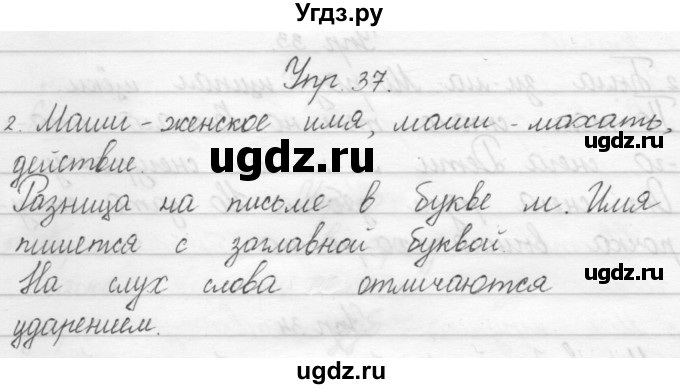 Угдз.ру
Упр. 37.
2. Маши - женское имя, маши - махать,
действие.
Разница на письме в букве м. Имя
пишется с заглавной буквой
На слух слова отличаются
ударением.
ugdz.ru
ugdz.ru
ugdz.ru
ugdz.ru
ugdz.ru